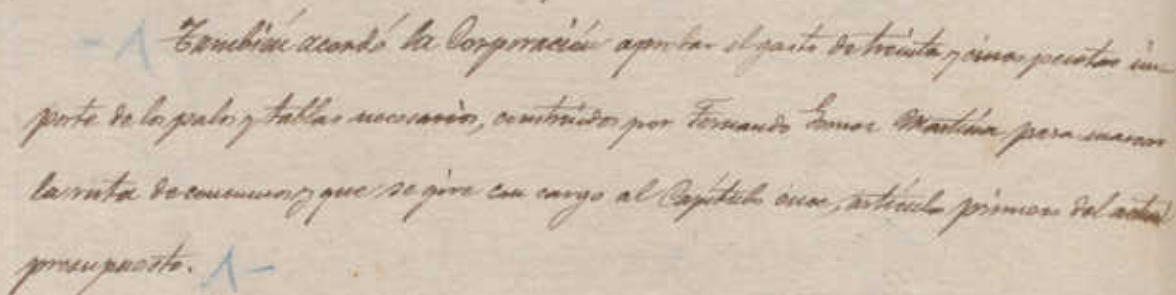 También acordó la Corporación aprobar el gasto de treinta y cinco pesetas im-
porte de los palos y tablas necesarios, construidos por Fernando Gomez Martínez para marcar
la ruta de y que se gire con cargo al Capítulo once, artículo primero del actual
presupuesto.